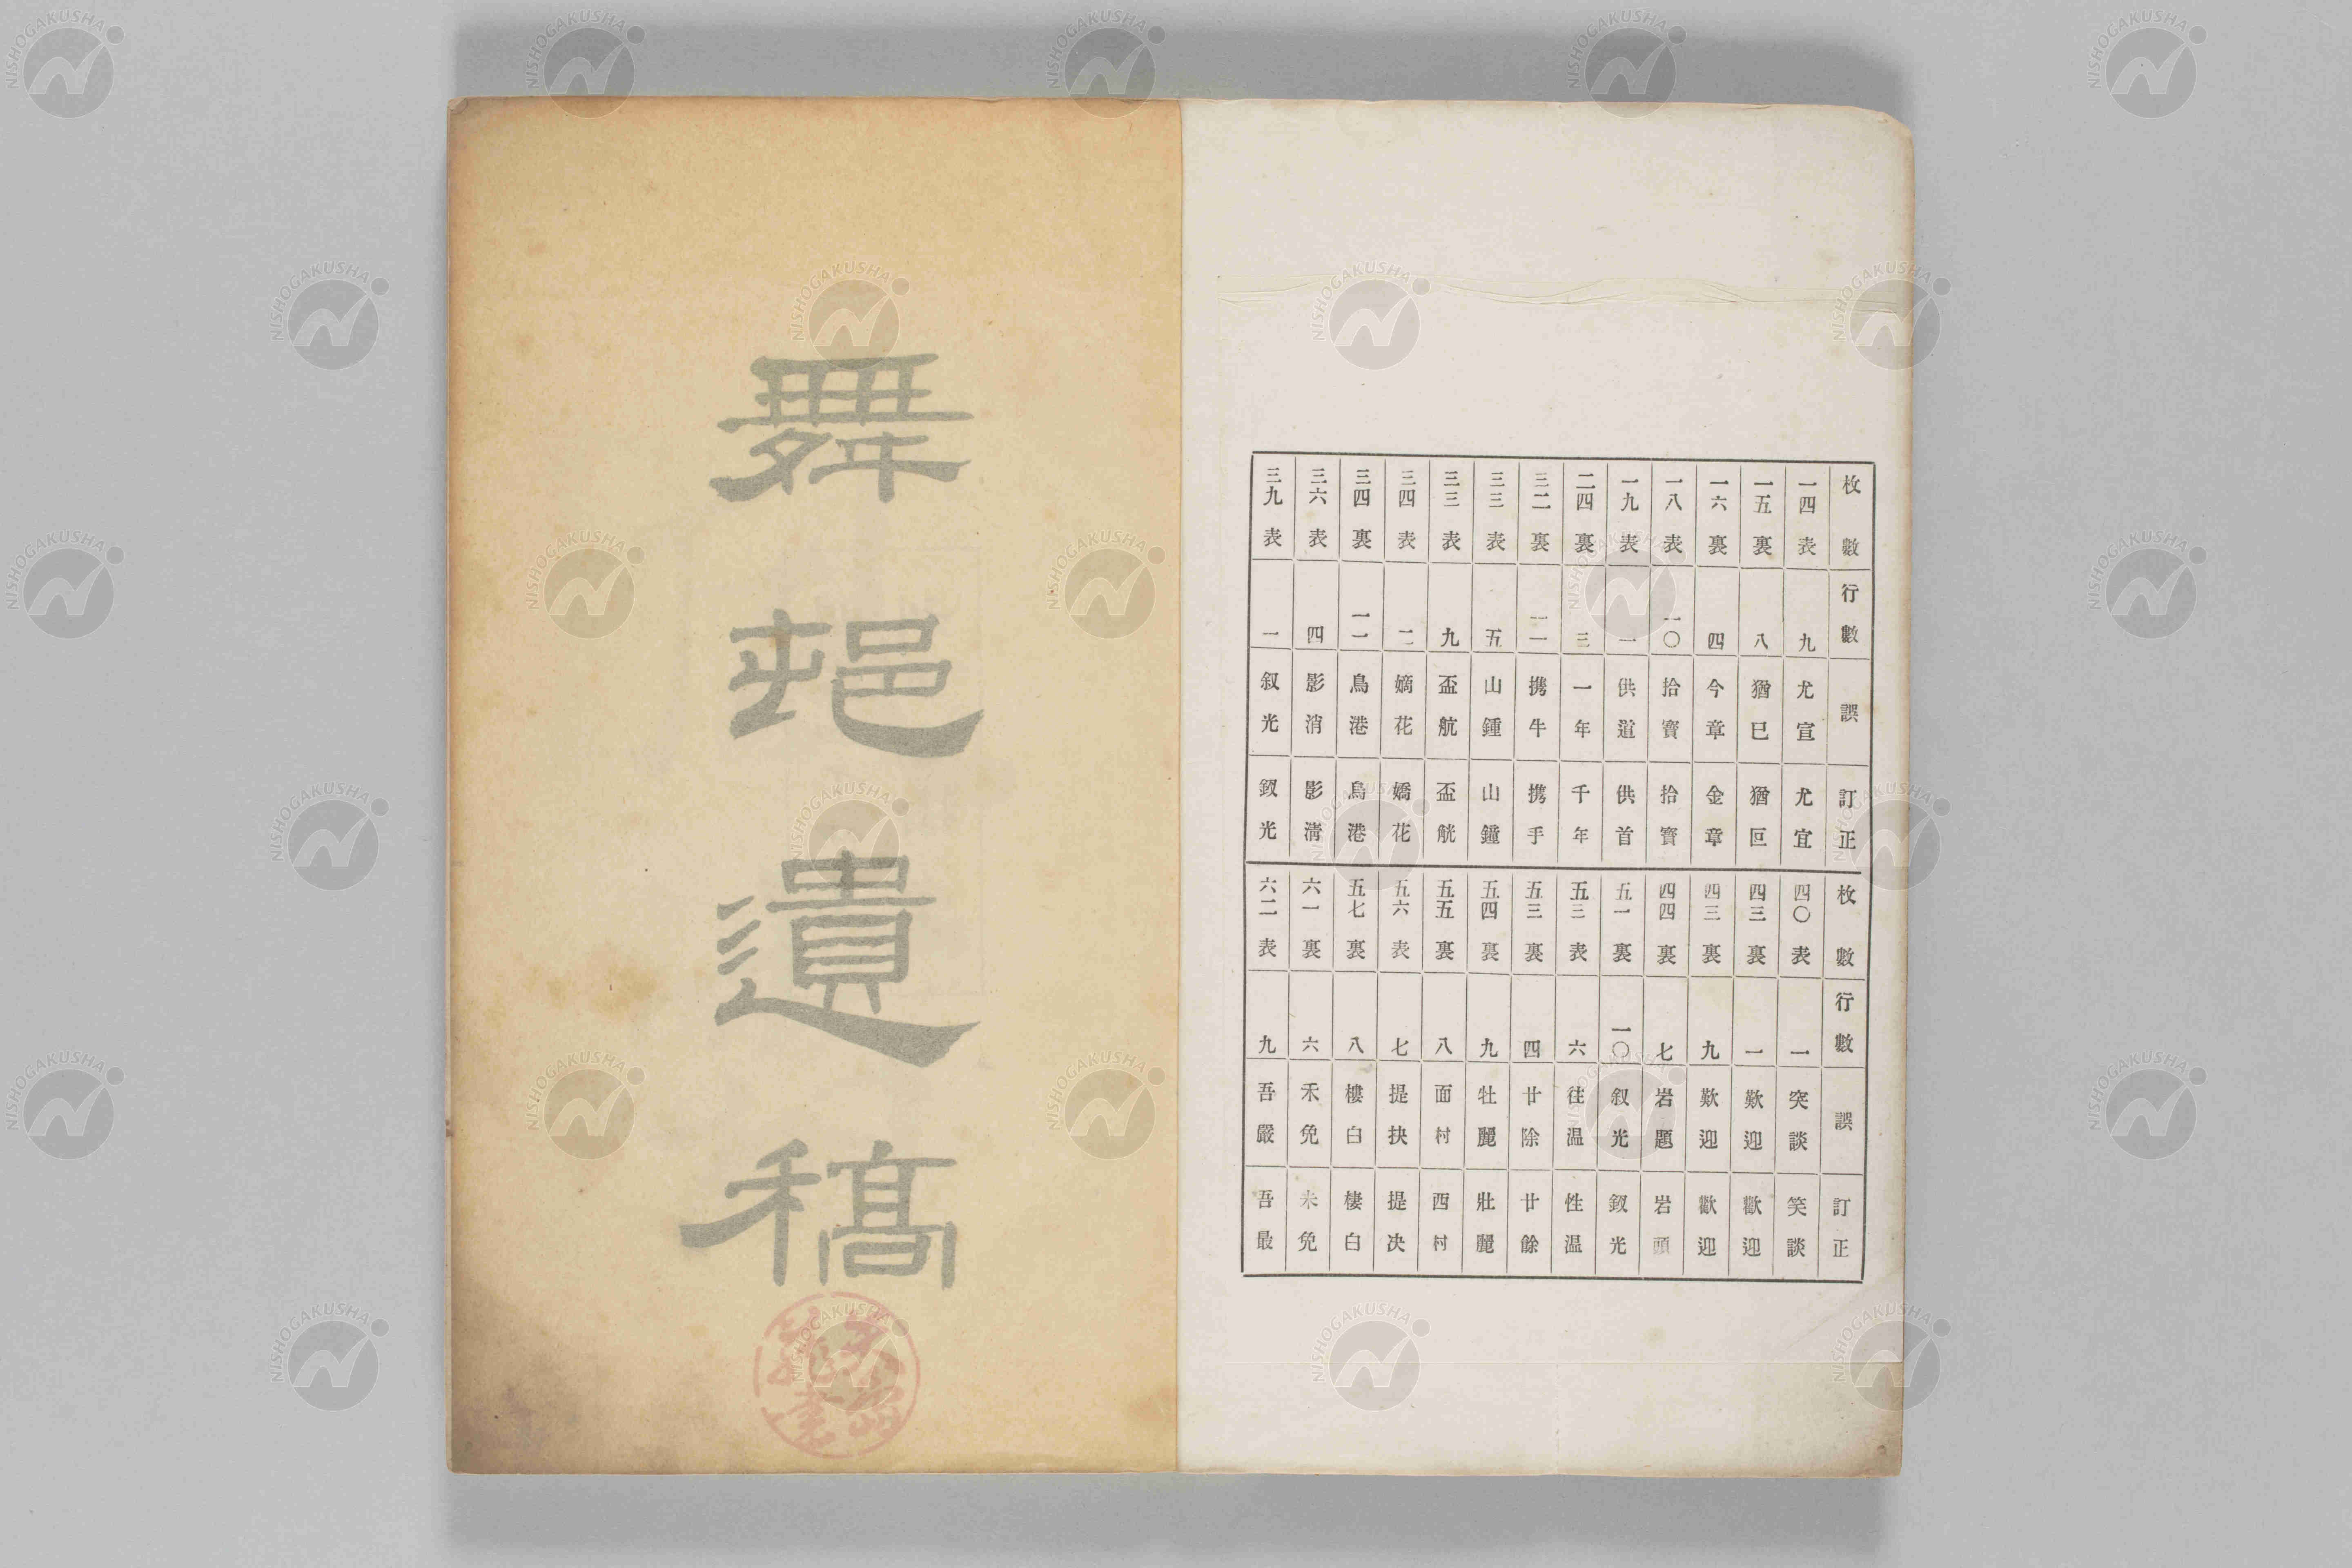 枚數 行數 誤 訂正
一四表 九 尤宣 尤宜
一五裏 八 猶巳 猶叵
一六裏 四 今章 金章
一八表 一〇 拾寶 拾實
一九表 一 供道 供首
二四裏 三 一年 千年
三二裏 一二 携牛 携手
三三表 五 山鍾 山鐘
三三表 九 盃航 盃觥
三四表 二 嫡花 嬌花
三四裏 一一 鳥港 烏港
三六表 四 影消 影淸
三九表 一 叙光 釵光
枚數 行數 誤 訂正
四〇表 一 突談 笑談
四三裏 一 歎迎 歡迎
四三裏 九 歎迎 歡迎
四四裏 七 岩題 岩頭
五一裏 一〇 叙光 釵光
五三表 六 往温 性温
五三裏 四 廿除 廿餘
五四裏 九 牡麗 壯麗
五五裏 八 面村 西村
五六表 七 提抉 提决
五七裏 八 樓白 棲白
六一裏 六 禾免 未免
六二表 九 吾嚴 吾最
舞邨遺稿
NISHOGAKUSHA